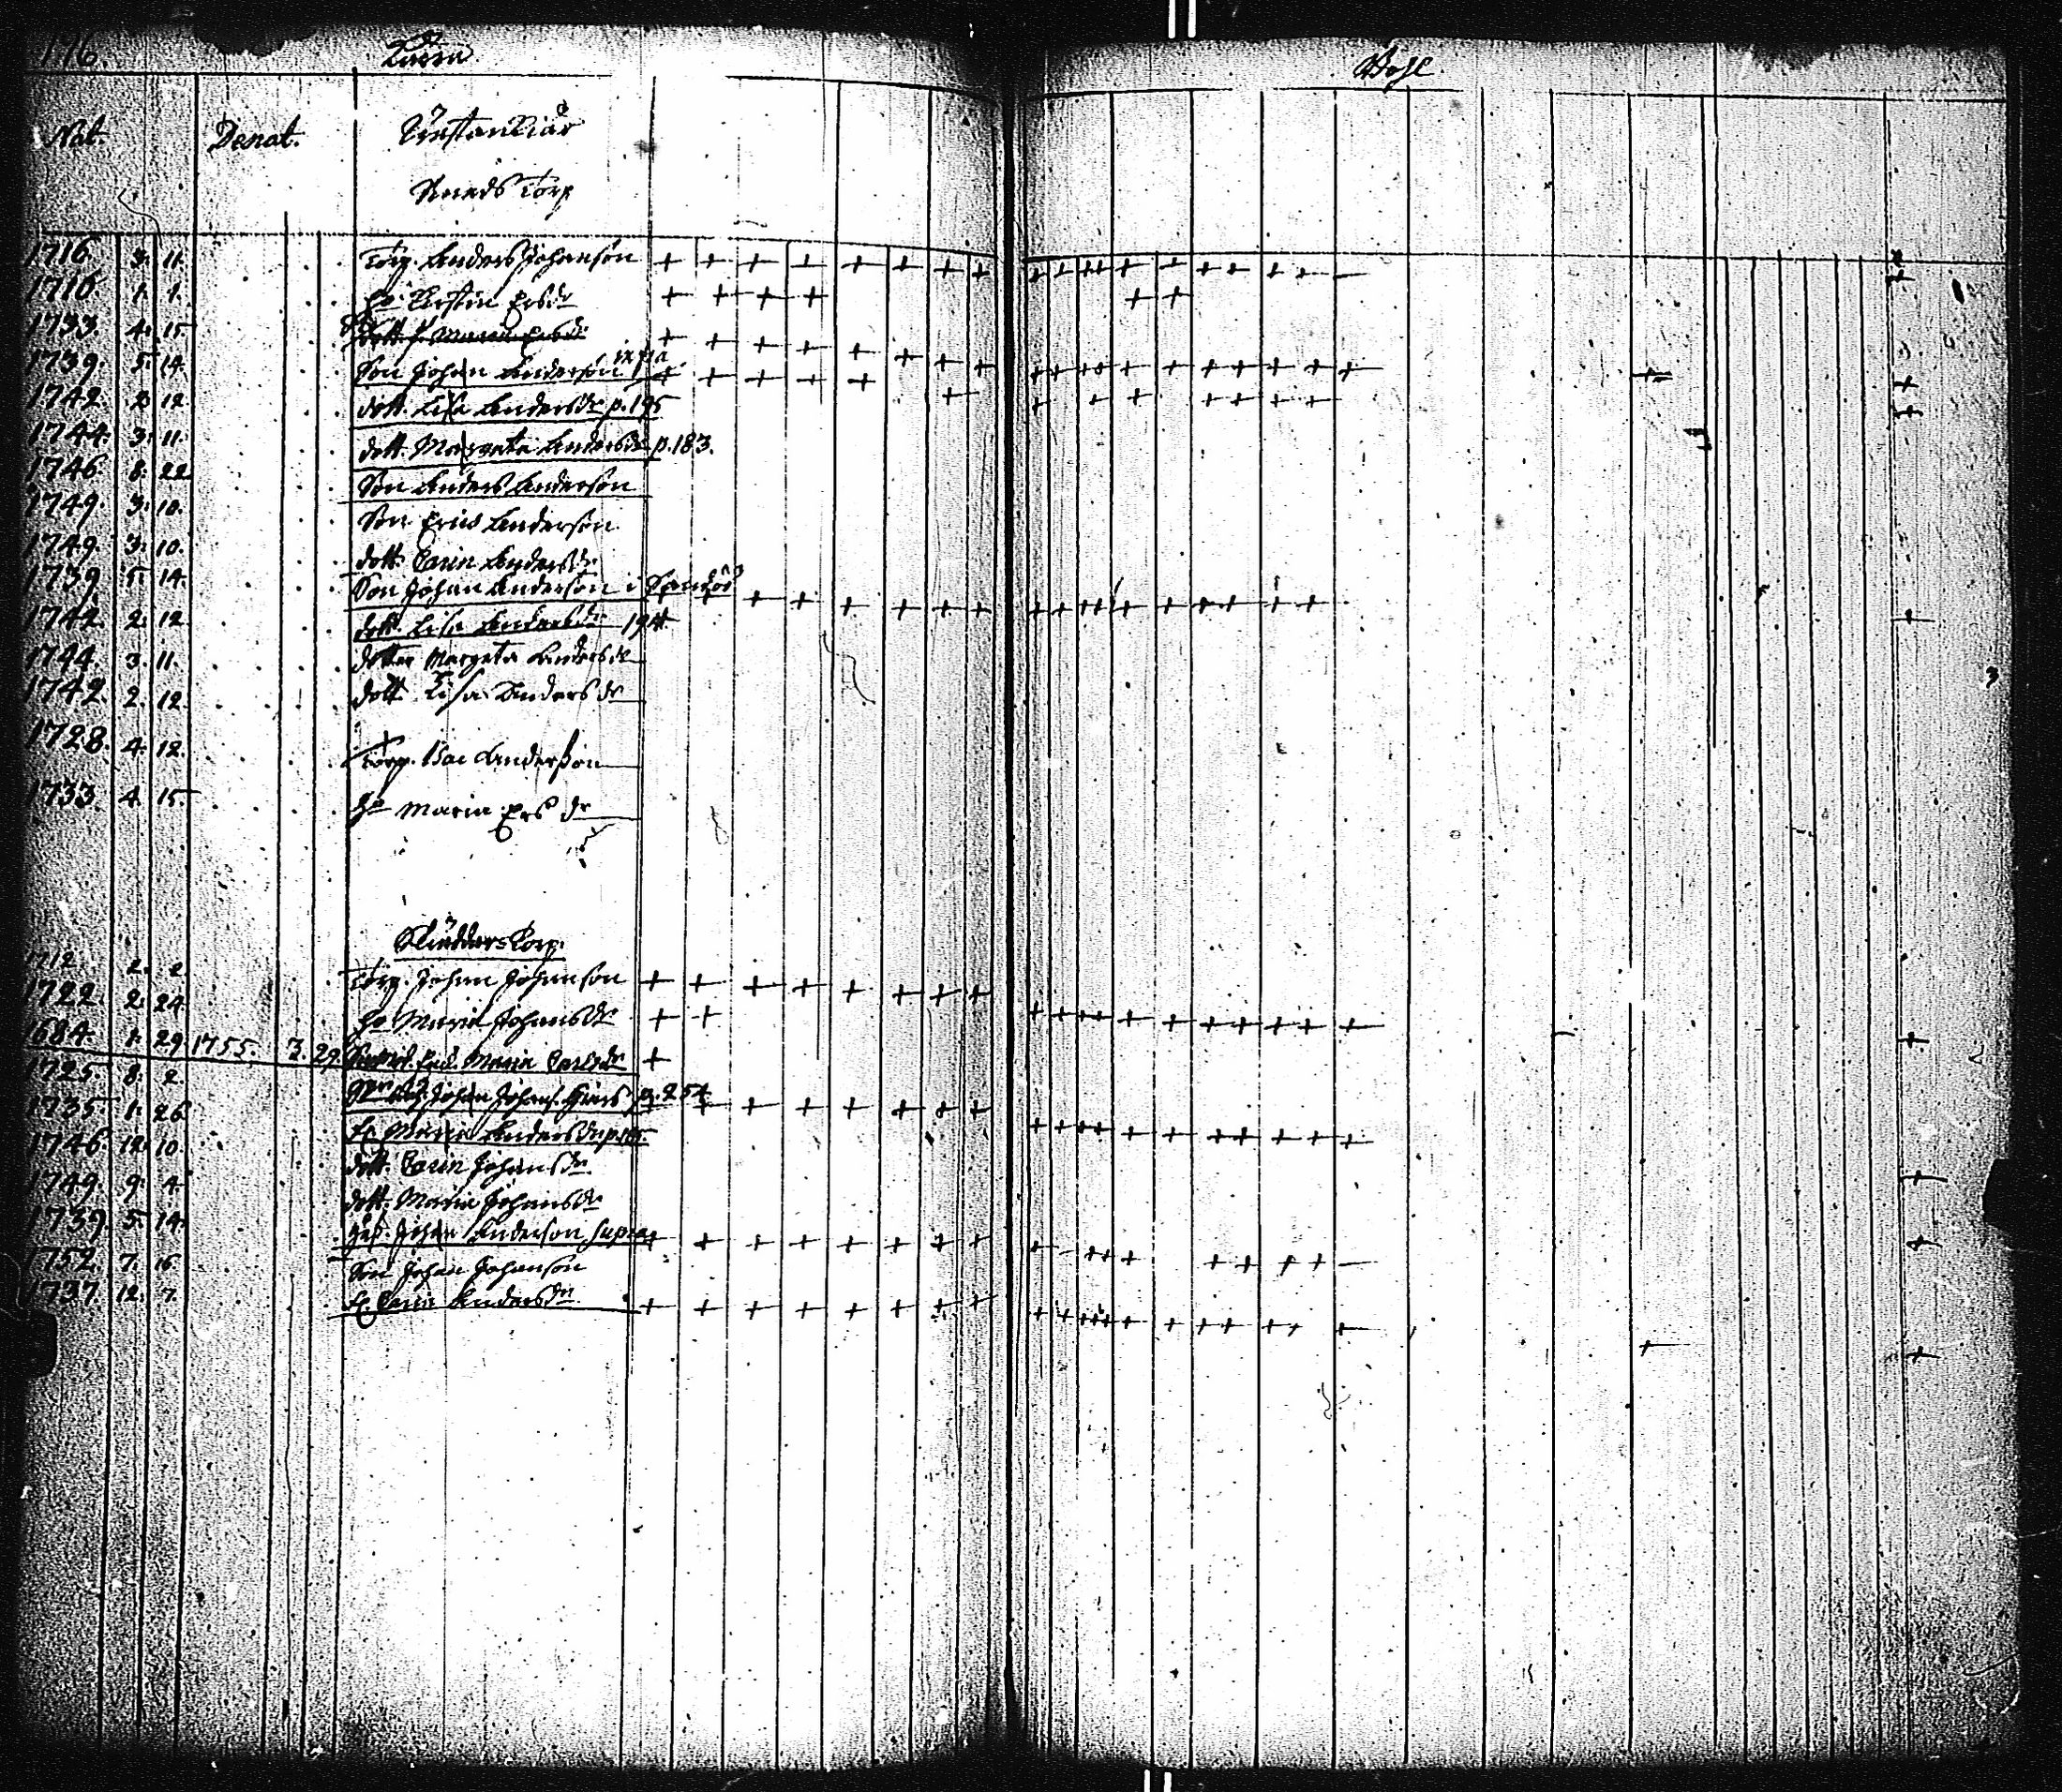 176.
Bohl
Nat. Denat.
Torp
1716. 3. 11. Torp. Anders Johanson
1716 1. 1. ho. Kirstin Ersdr
1733. 4. 15 Maria Ersdr
1739. 5. 14. Son Johan Anderson infra
1742. 2 12. dott. Lisa Andersdr p. 195
1744. 3. 11. dott. Margeta Andersdr p. 183.
1746. 8. 22 Son Anders Anderson
1749. 3. 10. Son Eric Anderson
1749. 3. 10. dott. Carin Andersdr
1739. 5. 14. Son Johan Anderson i
1742. 2. 12 dott. Lisa Andersdr 194
1744. 3. 11. dotter Margeta Andersdr
1742. 2. 12. dott Lisa Andersdr
1728. 4. 12. Torp. Isac Anderson
1733. 4 15. ho Maria Ersdr
1712 2. 2 Torp. Johan Johanson
1722. 2. 24. ho Maria Johansdr
1684. 1. 29. 1755. 3. 29. Maria Carlsdr
1725 8. 2. Johan Johans. p. 254
1735. 1. 26 Maria Andersdr
1746. 12. 10. dott. Carin Johansdr
1749. 9. 4 dott. Maria Johansdr
1739. 5. 14. Johan Anderson supra
1752. 7. 16 Son Johan Johanson
1737. 12. 7. Carin Andersdr